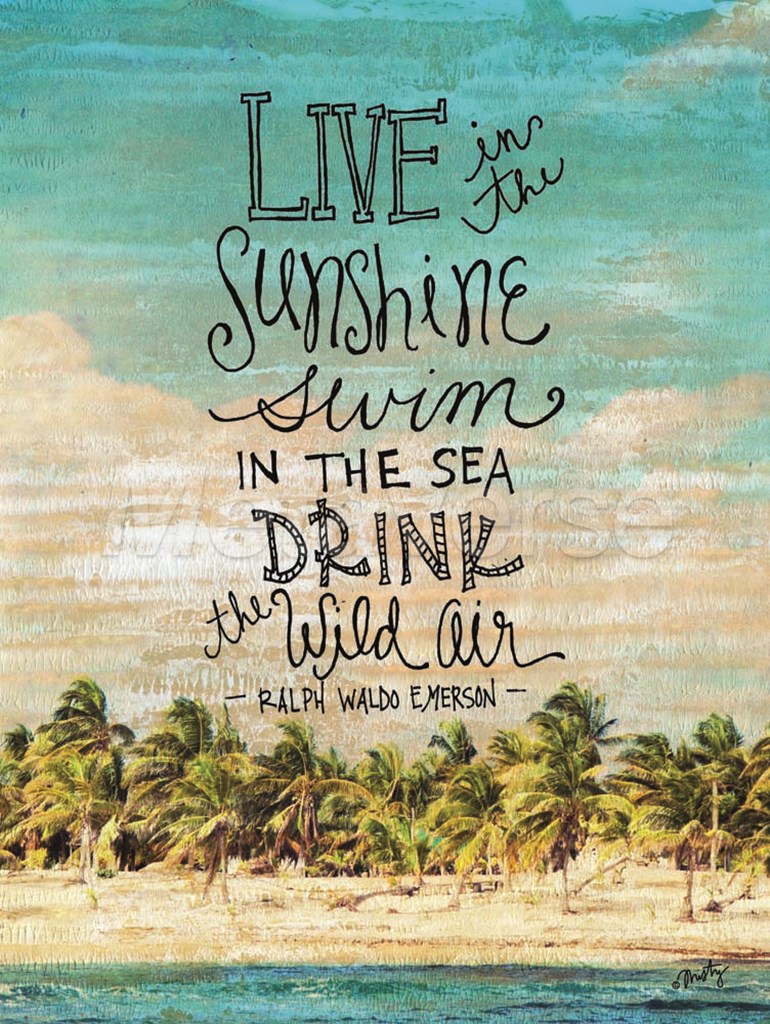 LIVE in the
Sunshine
swim
IN THE SEA
DRINK
the Wild Air
— RALPH WALDO EMERSON —
MediaVerse
© Misty